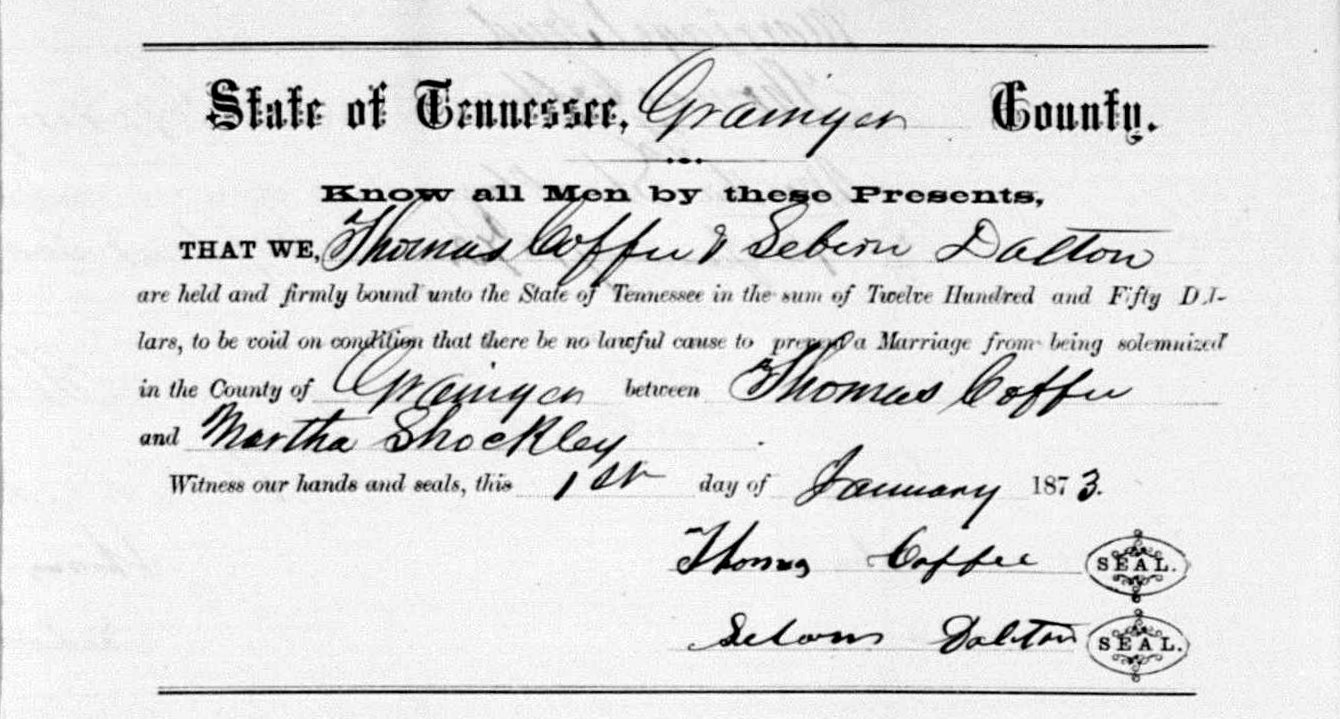 State of Tennessee, Grainger County.
Know all Men by these Presents,
THAT WE, Thomas Coffee & Sebern Dalton
are held and firmly bound unto the State of Tennessee in the sum of Twelve Hundred and Fifty Dol-
lars, to be void on condition that there be no lawful cause to prevent a Marriage from being solemnized
in the County of Grainger between Thomas Coffee
and Martha Shockley
Witness our hands and seals, this 1st day of January 1873.
Thomas Coffee SEAL.
Dalton SEAL.